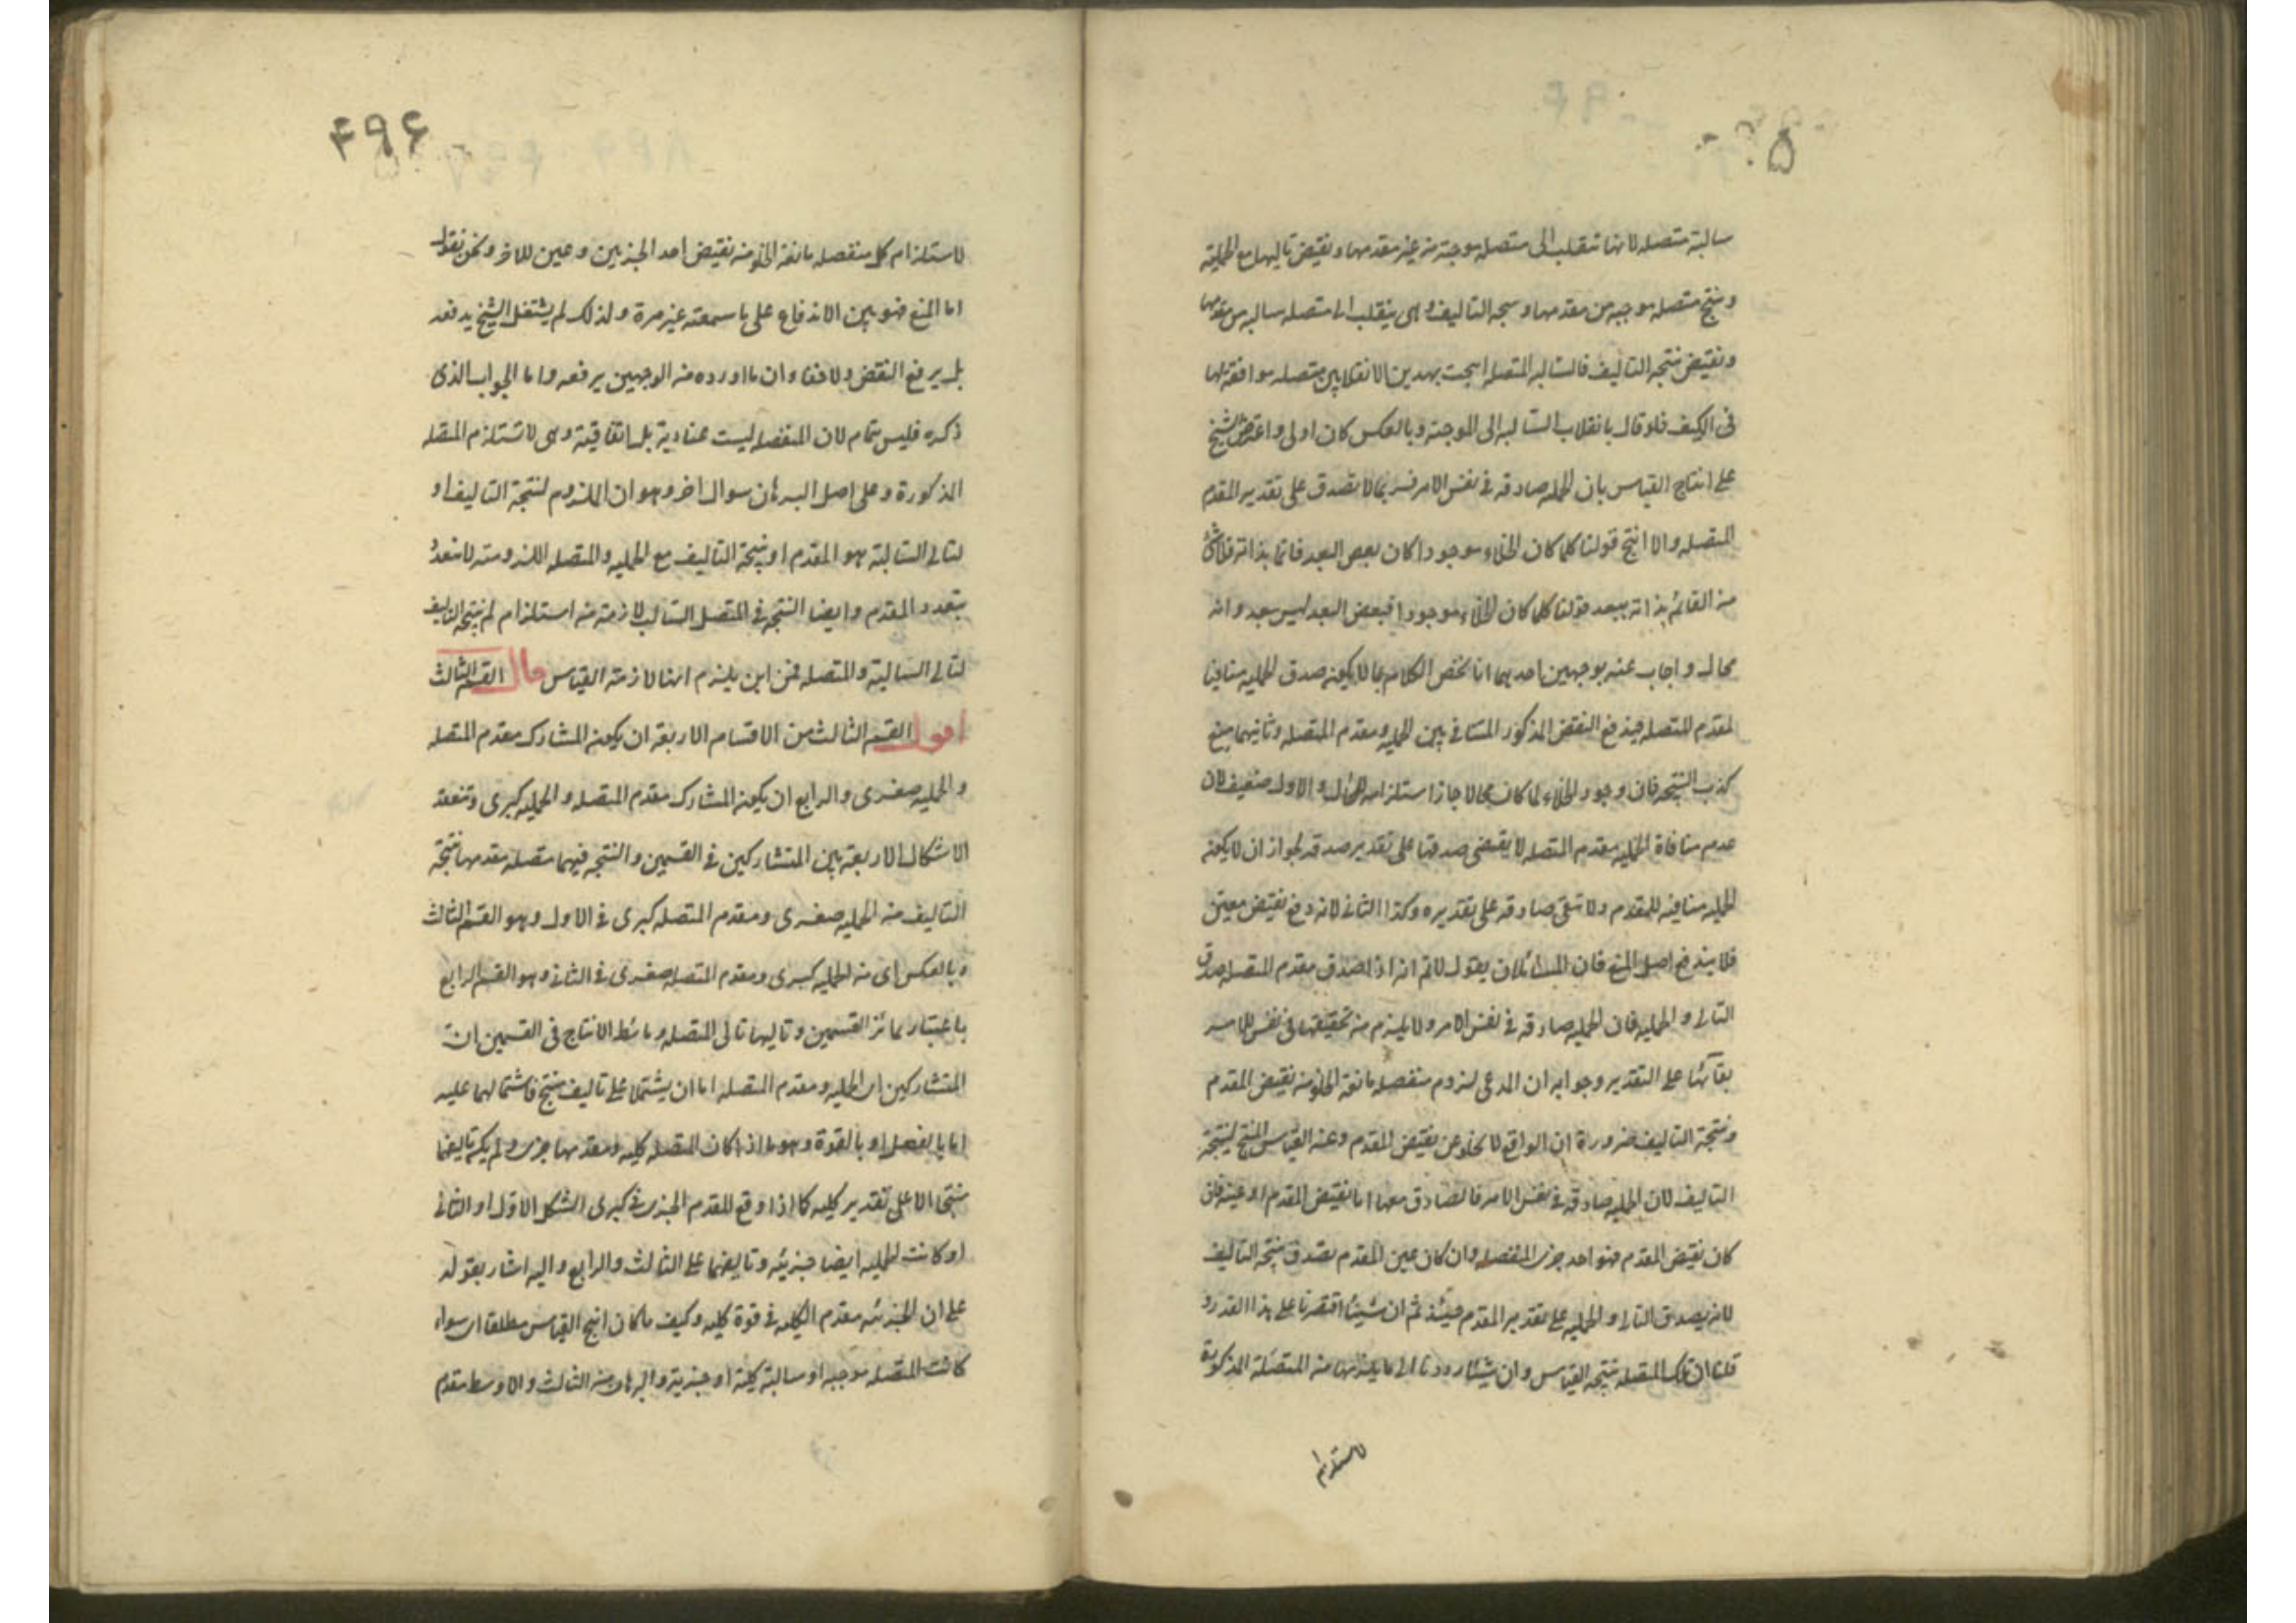 سالبة متصله لانها تنقلب الى متصله موجبة من عين مقدمها ونقيض تاليها مع الحملية
وينتج متصله موجبه من مقدمها ونتيجه التاليف وهى ينقلب الى متصله سالبه من مقدمها
ونقيض نتيجه التاليف فالسالبه المتصله انتجت بهذين الانقلابين متصله موافقه لها
فى الكيف فلو قال بانقلاب السالبه الى الموجبة وبالعكس كان اولى واعترض الشيخ
على انتاج القياس بان الحمليه صادقه فى نفس الامر فربما لا تصدق على تقدير المقدم
المتصله والا انتج قولنا كلما كان الخلاء موجودا كان بعض البعد قائما بذاته فلا شئ
من القائم بذاته ببعد قولنا كلما كان الخلاء موجودا فبعض البعد ليس ببعد وانه
محال واجاب عنه بوجهين احدهما انا نخص الكلام بما لا يكون صدق الحمليه منافيا
لمقدم المتصله فيندفع النقض المذكور المنافى بين الحمليه ومقدم المتصله وثانيهما منع
كذب النتيجه فان وجود الخلاء لما كان محالا جاز استلزامه المحال والاول ضعيف لان
عدم منافاة الحمليه مقدم المتصله لا يقتضى صدقها على تقدير صدقه لجواز ان لا يكون
الحمليه منافيه للمقدم ولا تبقى صادقه على تقديره وكذا الثانى لانه دفع نقيض معين
فلا يندفع اصل المنع فان للسائل ان يقول لانم انه اذا صدق مقدم المتصله صدق
التالى والحمليه فان الحمليه صادقه فى نفس الامر ولا يلزم من تحققها فى نفس الامر
بقائها على التقدير وجوابه ان المدعى لزوم منفصله مانعة الخلو من نقيض المقدم
ونتيجة التاليف ضرورة ان الواقع لا يخلو عن نقيض المقدم وعن القياس المنتج لنتيجة
التاليف لان الحمليه صادقه فى نفس الامر فالصادق معها اما نقيض المقدم او عينه فان
كان نقيض المقدم فهو احد جزئى المنفصله وان كان عين المقدم يصدق نتيجه التاليف
لانه يصدق التالى والحمليه على تقدير المقدم حينئذ ثم ان شئنا اقتصرنا على هذا القدر و
قلنا ان تلك المتصله نتيجه القياس وان شئنا رددنا الى ما يلزمها من المتصلة المذكورة
لاستلزام
۴۹۶
لاستلزام كل منفصله مانعة الخلو من نقيض احد الجزئين وعين للاخر ونحن نقول
اما المنع فهو بين الاندفاع على ما سمعته غير مرة ولذلك لم يشتغل الشيخ بدفعه
بل يرفع النقض ولا خفاء ان ما اورده من الوجهين يرفعه واما الجواب الذى
ذكره فليس بتمام لان المنفصله ليست عنادية بل اتفاقية وهى لا تستلزم المتصله
المذكورة وعلى اصل البرهان سوال اخر وهو ان الملزوم لنتيجة التاليف او
لتالى السالبة هو المقدم او نتيجة التاليف مع الحمليه والمتصله اللزوميه لا تتعدد
بتعدد المقدم وايضا النتيجه فى المتصل السالب لازمة من استلزام لم نتيجه التاليف
لتالى السالبة والمتصله فمن اين يلزم انها لازمة القياس قال القسم الثالث
اقول القسم الثالث من الاقسام الاربعة ان يكون المشارك مقدم المتصله
والحمليه صغرى والرابع ان يكون المشارك مقدم المتصله والحمليه كبرى وتنعقد
الاشكال الاربعة بين المتشاركين فى القسمين والنتيجه فيهما متصله مقدمها نتيجة
التاليف من الحمليه صغرى ومقدم المتصله كبرى فى الاول وهو القسم الثالث
وبالعكس اى من الحمليه كبرى ومقدم المتصله صغرى فى الثانى وهو القسم الرابع
باعتبار تمائز القسمين وتاليها تالى المتصله وشرائط الانتاج فى القسمين ان
المتشاركين اى الحمليه ومقدم المتصله اما ان يشتملا على تاليف منتج فاشتمالهما عليه
اما بالفعل او بالقوة وهو ما اذا كان المتصله كليه ومقدمها جزئى ولم يكن تاليفهما
منتجا الا على تقدير كليه كما اذا وقع المقدم الجزئى فى كبرى الشكل الاول او الثانى
او كانت الحمليه ايضا جزئيه وتاليفهما على الثالث والرابع واليه اشار بقوله
على ان الجزئيه مقدم الكليه فى قوة كليه وكيف ما كان انتج القياس مطلقا اى سواء
كانت المتصله موجبه او سالبة كلية او جزئية والبرهان من الثالث والاوسط مقدم